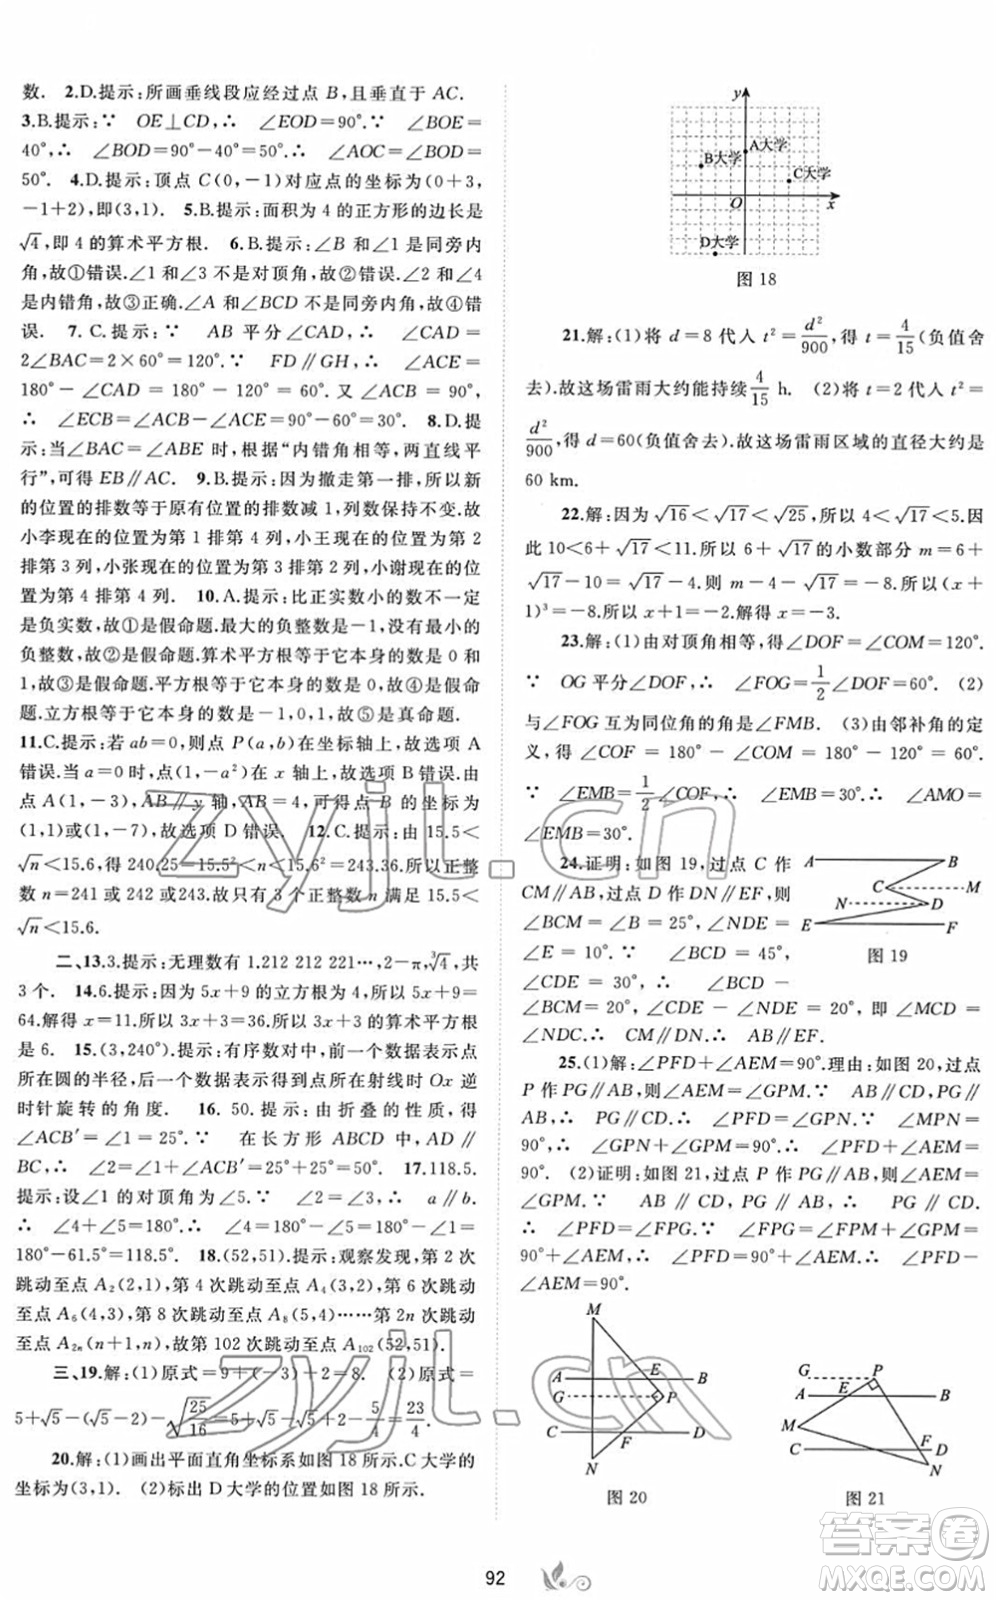 数. 2.D.提示:所画垂线段应经过点 B,且垂直于 AC.
3.B.提示:∵ OE⊥CD,∴ ∠EOD=90°.∵ ∠BOE=
40°,∴ ∠BOD=90°-40°=50°.∴ ∠AOC=∠BOD=
50°. 4.D.提示:顶点 C(0,-1)对应点的坐标为(0+3,
-1+2),即(3,1). 5.B.提示:面积为 4 的正方形的边长是
√4,即 4 的算术平方根. 6.B.提示:∠B 和∠1 是同旁内
角,故①错误.∠1 和∠3 不是对顶角,故②错误.∠2 和∠4
是内错角,故③正确.∠A 和∠BCD 不是同旁内角,故④错
误. 7.C.提示:∵ AB 平分∠CAD,∴ ∠CAD=
2∠BAC=2×60°=120°.∵ FD∥GH,∴ ∠ACE=
180°-∠CAD=180°-120°=60°.又∠ACB=90°,
∴ ∠ECB=∠ACB-∠ACE=90°-60°=30°. 8.D.提
示:当∠BAC=∠ABE 时,根据“内错角相等,两直线平
行”,可得 EB∥AC. 9.B.提示:因为撤走第一排,所以新
的位置的排数等于原有位置的排数减 1,列数保持不变.故
小李现在的位置为第 1 排第 4 列,小王现在的位置为第 2
排第 3 列,小张现在的位置为第 3 排第 2 列,小谢现在的位
置为第 4 排第 4 列. 10.A.提示:比正实数小的数不一定
是负实数,故①是假命题.最大的负整数是-1,没有最小的
负整数,故②是假命题.算术平方根等于它本身的数是 0 和
1,故③是假命题.平方根等于它本身的数是 0,故④是假命
题.立方根等于它本身的数是-1,0,1,故⑤是真命题.
11.C.提示:若 ab=0,则点 P(a,b)在坐标轴上,故选项 A
错误.当 a=0 时,点(1,-a²)在 x 轴上,故选项 B 错误.由
点 A(1,-3),AB∥y 轴,AB=4,可得点 B 的坐标为
(1,1)或(1,-7),故选项 D 错误. 12.C.提示:由 15.5<
√n<15.6,得 240.25=15.5²<n<15.6²=243.36.所以正整
数 n=241 或 242 或243.故只有 3 个正整数 n 满足 15.5<
√n<15.6.
二、13.3.提示:无理数有 1.212 212 221…,2-π,∛4,共
3 个. 14.6.提示:因为 5x+9 的立方根为 4,所以 5x+9=
64.解得 x=11.所以 3x+3=36.所以 3x+3 的算术平方根
是 6. 15.(3,240°).提示:有序数对中,前一个数据表示点
所在圆的半径,后一个数据表示得到点所在射线时 Ox 逆
时针旋转的角度. 16. 50.提示:由折叠的性质,得
∠ACB′=∠1=25°.∵ 在长方形 ABCD 中,AD∥
BC,∴ ∠2=∠1+∠ACB′=25°+25°=50°. 17.118.5.
提示:设∠1 的对顶角为∠5.∵ ∠2=∠3,∴ a∥b.
∴ ∠4+∠5=180°.∴ ∠4=180°-∠5=180°-∠1=
180°-61.5°=118.5°. 18.(52,51).提示:观察发现,第 2 次
跳动至点 A₂(2,1),第 4 次跳动至点 A₄(3,2),第 6 次跳动
至点 A₆(4,3),第 8 次跳动至点 A₈(5,4)……第 2n 次跳动
至点 A₂ₙ(n+1,n),故第 102 次跳动至点 A₁₀₂(52,51).
三、19.解:(1)原式=9+(-3)+2=8. (2)原式=
5+√5-(√5-2)-√(25/16)=5+√5-√5+2-5/4=23/4.
20.解:(1)画出平面直角坐标系如图 18 所示.C 大学的
坐标为(3,1). (2)标出 D 大学的位置如图 18 所示.
y
A大学
B大学
C大学
O x
D大学
图 18
21.解:(1)将 d=8 代入 t²=d²/900,得 t=4/15(负值舍
去).故这场雷雨大约能持续4/15 h. (2)将 t=2 代入 t²=
d²/900,得 d=60(负值舍去).故这场雷雨区域的直径大约是
60 km.
22.解:因为√16<√17<√25,所以 4<√17<5.因
此 10<6+√17<11.所以 6+√17的小数部分 m=6+
√17-10=√17-4.则 m-4-√17=-8.所以(x+
1)³=-8.所以 x+1=-2.解得 x=-3.
23.解:(1)由对顶角相等,得∠DOF=∠COM=120°.
∵ OG 平分∠DOF,∴ ∠FOG=1/2∠DOF=60°. (2)
与∠FOG 互为同位角的角是∠FMB. (3)由邻补角的定
义,得∠COF=180°-∠COM=180°-120°=60°.
∵ ∠EMB=1/2∠COF,∴ ∠EMB=30°.∴ ∠AMO=
∠EMB=30°.
24.证明:如图 19,过点 C 作
CM∥AB,过点 D 作 DN∥EF,则
∠BCM=∠B=25°,∠NDE=
∠E=10°.∵ ∠BCD=45°,
∠CDE=30°,∴ ∠BCD-
∠BCM=20°,∠CDE-∠NDE=20°,即∠MCD=
∠NDC.∴ CM∥DN.∴ AB∥EF.
A B
C M
N D
E F
图 19
25.(1)解:∠PFD+∠AEM=90°.理由:如图 20,过点
P 作 PG∥AB,则∠AEM=∠GPM.∵ AB∥CD,PG∥
AB,∴ PG∥CD.∴ ∠PFD=∠GPN.∵ ∠MPN=
90°,∴ ∠GPN+∠GPM=90°.∴ ∠PFD+∠AEM=
90°. (2)证明:如图 21,过点 P 作 PG∥AB,则∠AEM=
∠GPM.∵ AB∥CD,PG∥AB,∴ PG∥CD.
∴ ∠PFD=∠FPG.∵ ∠FPG=∠FPM+∠GPM=
90°+∠AEM,∴ ∠PFD=90°+∠AEM.∴ ∠PFD-
∠AEM=90°.
M
A E B
G P
C F D
N
图 20
G P
A E B
M
C F D
N
图 21
92
zyjl.cn
zyjl.cn
答案卷
MXQE.COM